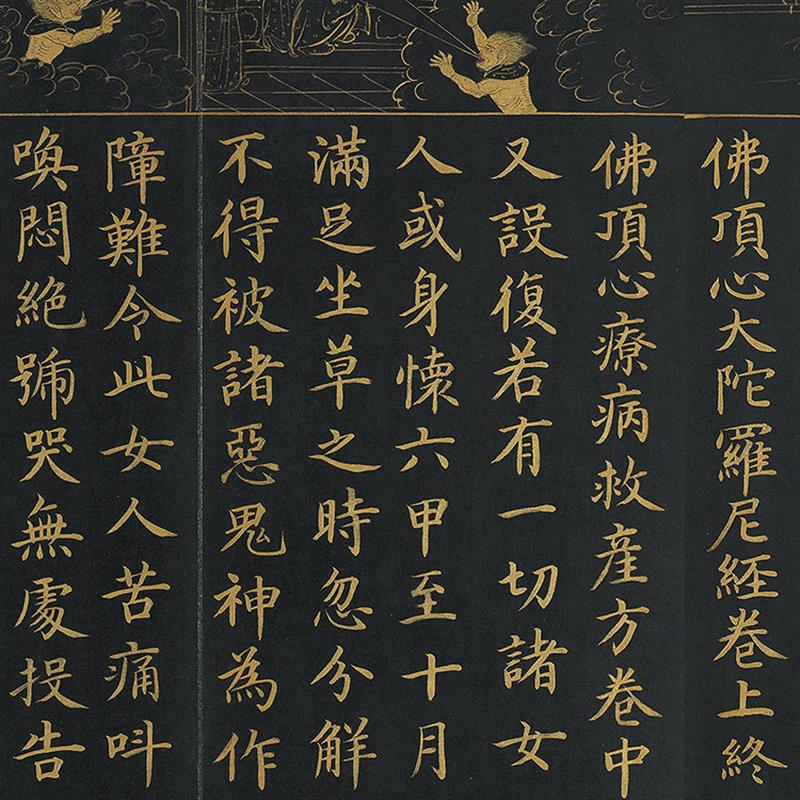 佛頂心大陀羅尼經卷上終
佛頂心療病救產方卷中
又設復若有一切諸女
人或身懷六甲至十月
滿足坐草之時忽分解
不得被諸惡鬼神為作
障難令此女人苦痛呌
喚悶絕號哭無處投告